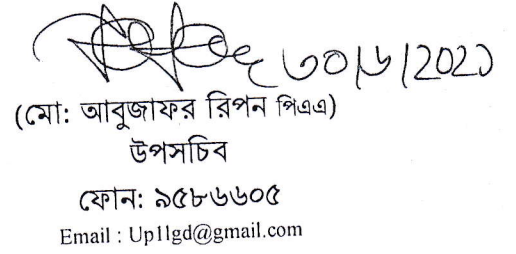 ৩০|৬|202১
(মো: আবুজাফর রিপন পিএএ)
উপসচিব
ফোন: ৯৫৮৬৬০৫
Email : Up1lgd@gmail.com